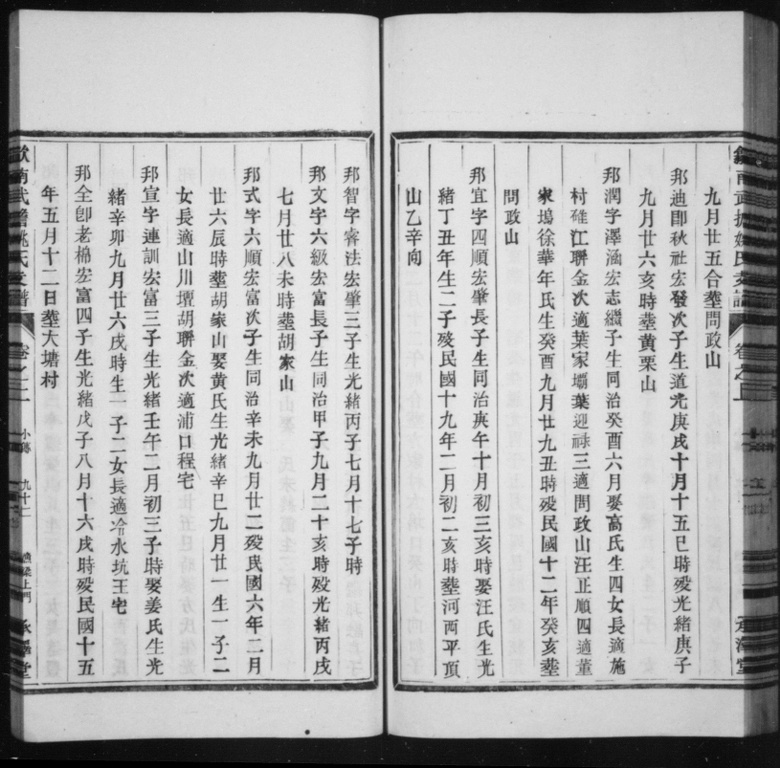 九月廿五合塟問政山
邦迪即秋社宏發次子生道光庚戌十月十五巳時殁光緒庚子
九月廿六亥時塟黄栗山
邦潤字澤涵宏志繼子生同治癸酉六月娶高氏生四女長適施
村碓江聨金次適葉家壩葉迎祿三適問政山汪正順四適董
家塢徐華年氏生癸酉九月廿九丑時殁民國十二年癸亥塟
問政山
邦宜字四順宏肇長子生同治庚午十月初三亥時娶汪氏生光
緒丁丑年生二子殁民國十九年二月初二亥時塟河西平頂
山乙辛向
邦智字睿法宏肇三子生光緒丙子七月十七子時
邦文字六級宏富長子生同治甲子九月二十亥時殁光緒丙戌
七月廿八未時塟胡家山
邦式字六順宏富次子生同治辛未九月廿二殁民國六年二月
廿六辰時塟胡家山娶黄氏生光緒辛巳九月廿一生一子二
女長適山川壇胡聨金次適浦口程宅
邦宣字連訓宏富三子生光緒壬午二月初三子時娶姜氏生光
緒辛卯九月廿六戌時生一子二女長適冷水坑王宅
邦全卽老棉宏富四子生光緒戊子八月十六戌時殁民國十五
年五月十二日塟大塘村
卷之二
小傳
九十二
承澤堂